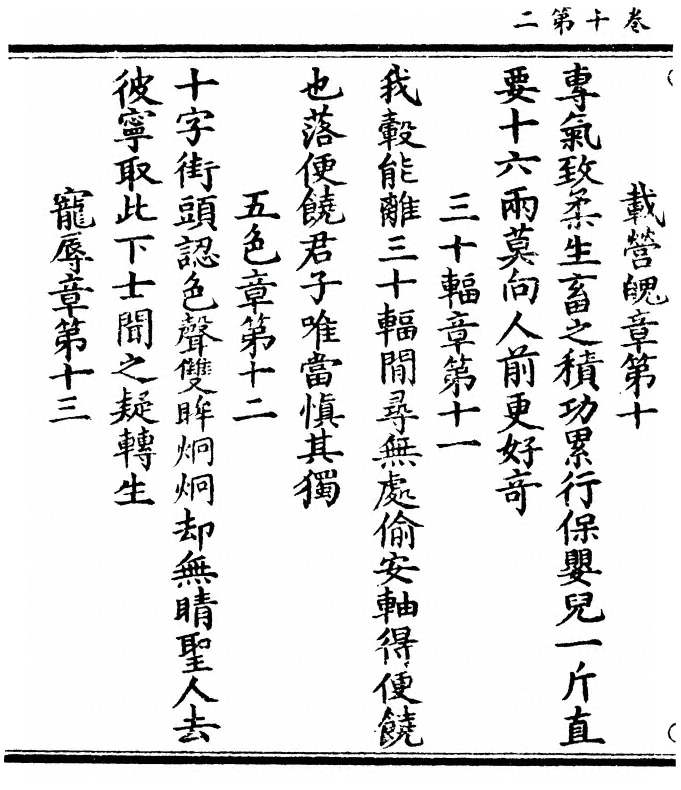 卷十第二
載營魄章第十
專氣致柔生畜之積功累行保嬰兒一斤直
要十六兩莫向人前更好竒
三十輻章第十一
我轂能離三十輻閒尋無處偷安軸得便饒
也落便饒君子唯當慎其獨
五色章第十二
十字街頭認色聲雙眸炯炯却無睛聖人去
彼寧取此下士聞之疑轉生
寵辱章第十三